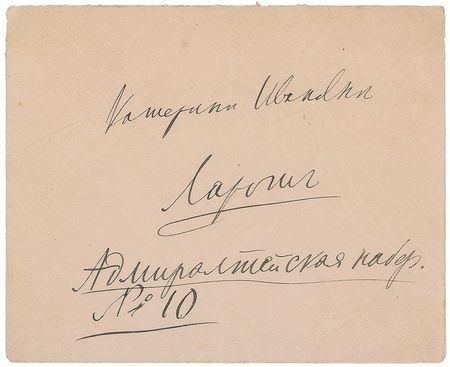 Катерине Ивановне
Ларош
Адмиралтейская набер.
№ 10